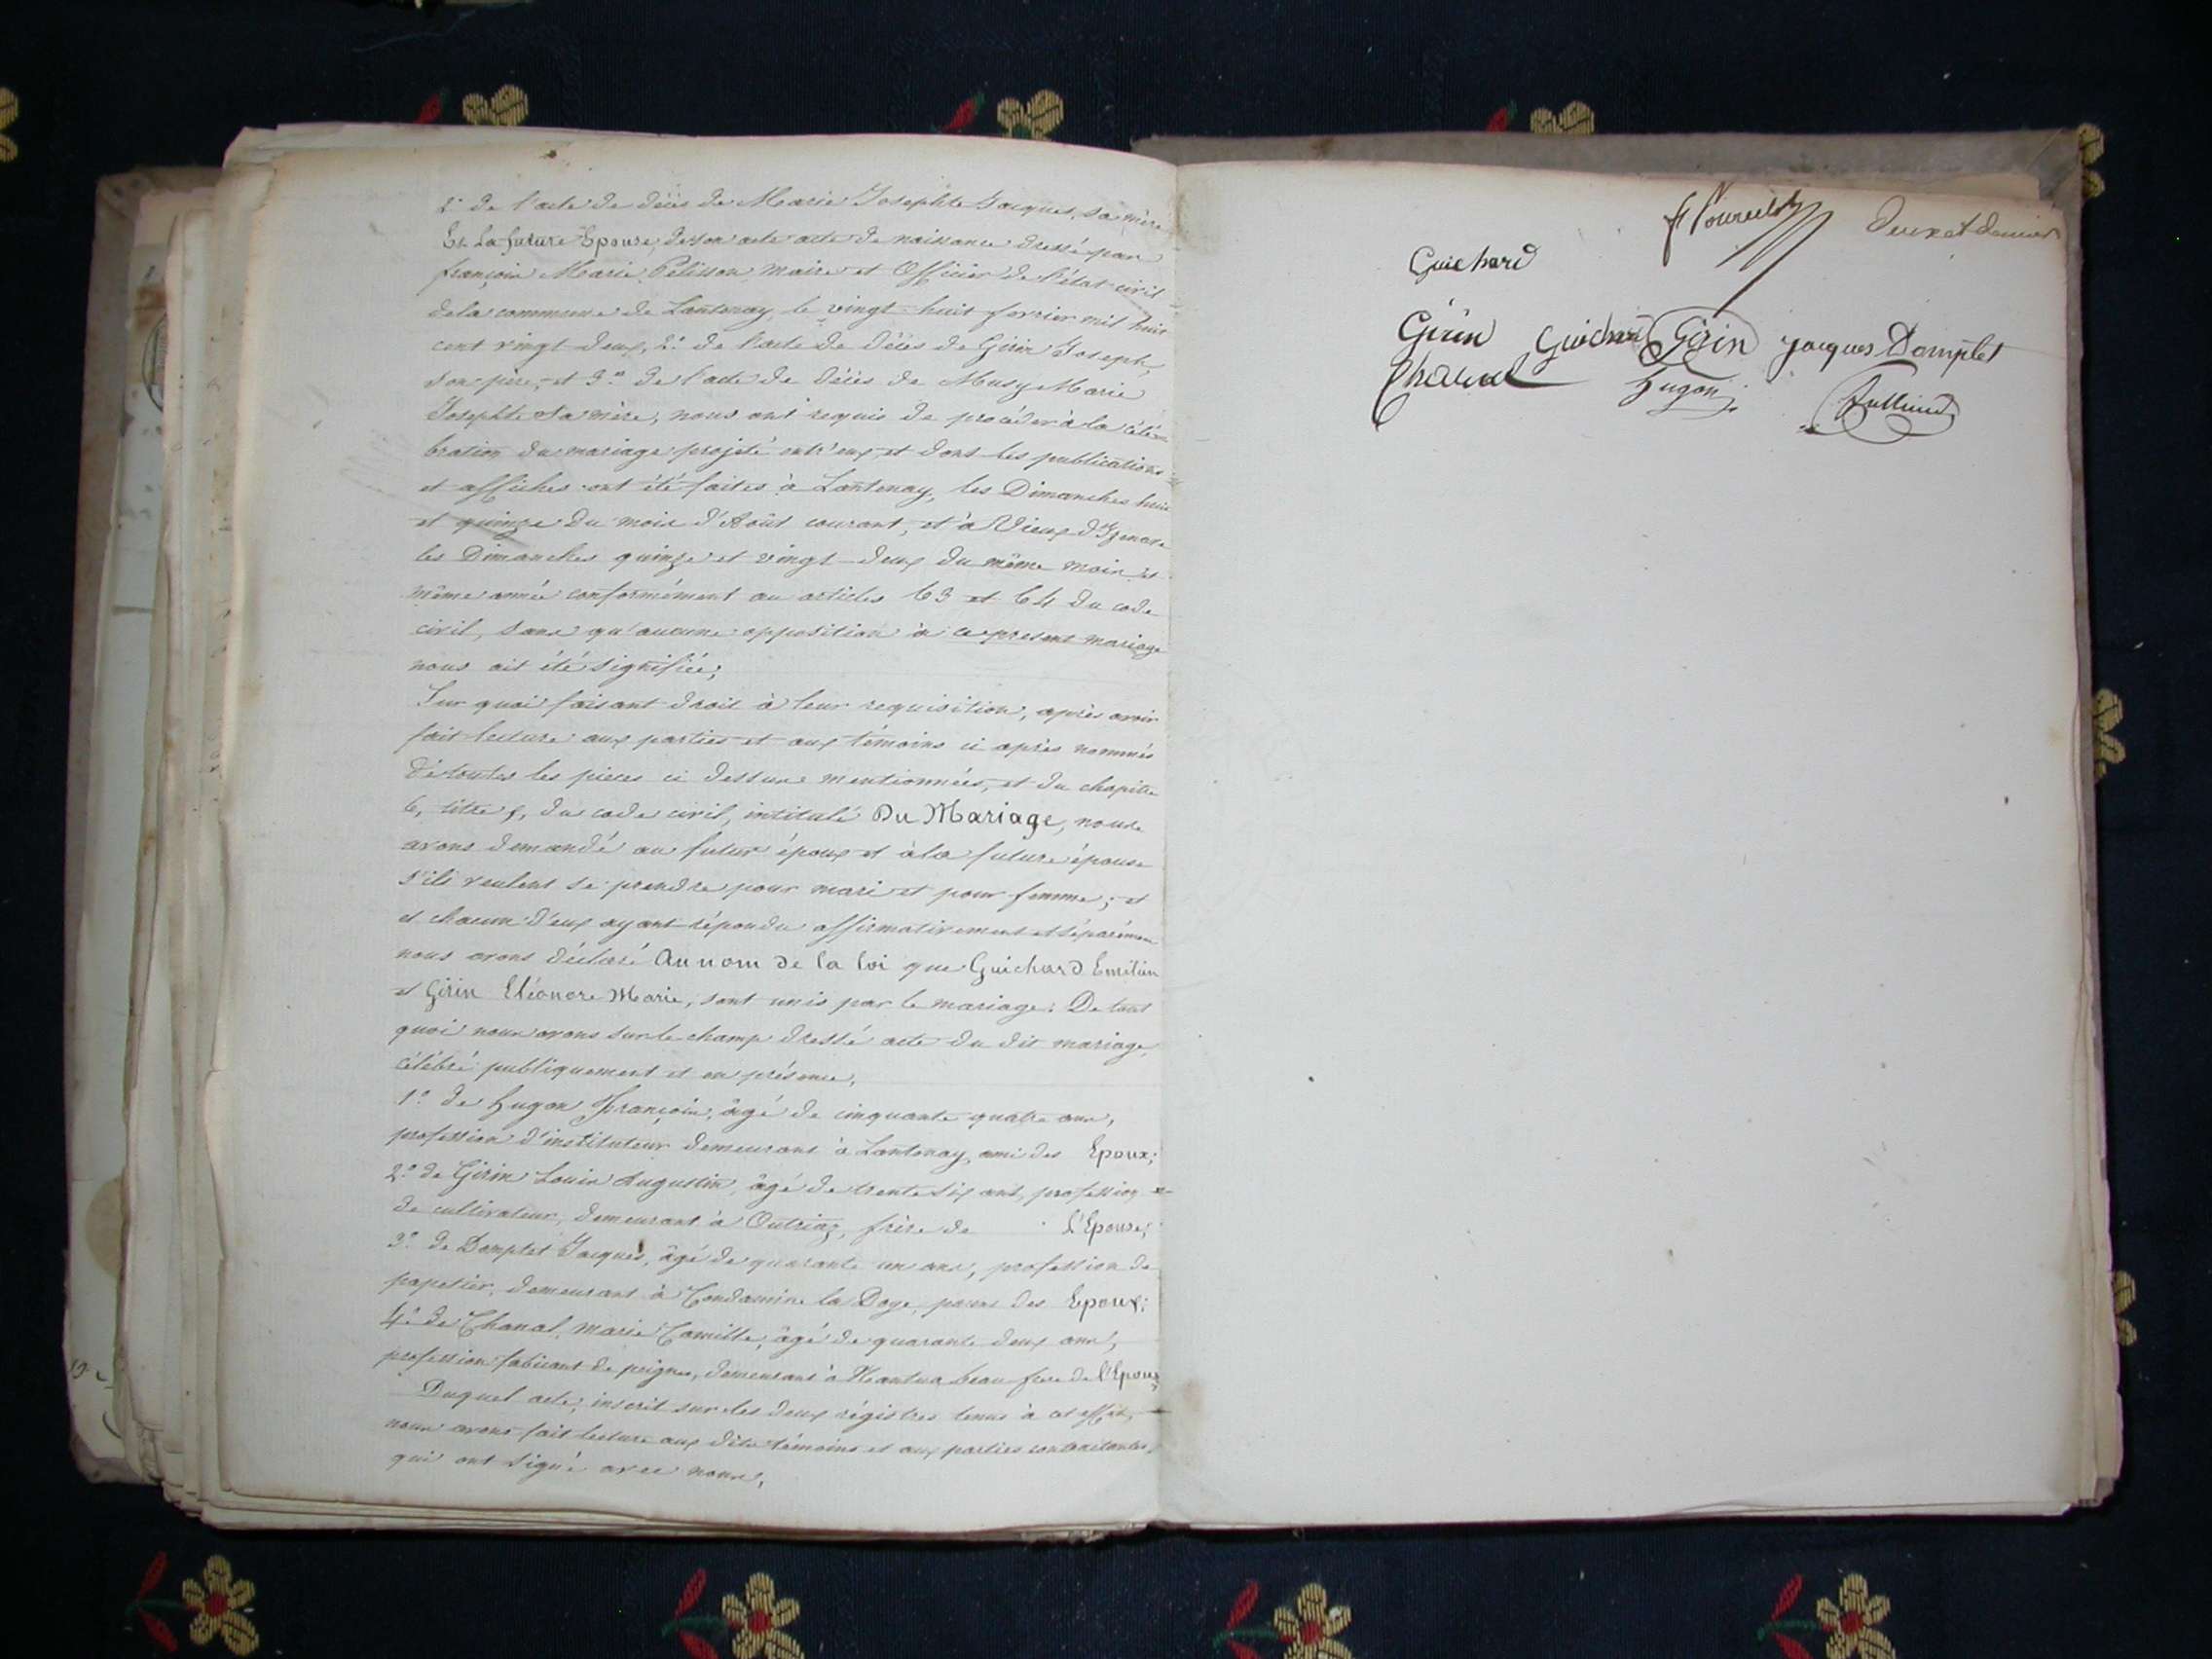 2° de l'acte de décès de Marie Josephte Jacquet, sa mère
Et la future Epouse, de son acte acte de naissance dressé par
françois Marie Pelisson, maire et Officier de l'état civil
de la commune de Lantenay, le vingt-huit fevrier mil huit
cent vingt deux, 2° de l'acte de décès de Girin Joseph
son père, et 3° de l'acte de décès de Musy Marie
Josephte sa mère, nous ont requis de procéder à la célé
bration du mariage projeté entr'eux, et dont les publications
et affiches ont été faites à Lantenay, les Dimanches huit
et quinze du mois d'Août courant, et à Vieux d'Izenave
les Dimanches quinze et vingt-deux du même mois et
même année conformément au articles 63 et 64 du code
civil, sans qu'aucune opposition à ce present mariage
nous ait été signifiée;
Sur quoi faisant droit à leur requisition, après avoir
fait lecture aux parties et aux témoins ci après nommés
de toutes les pieces ci dessus mentionnées, et du chapitre
6, titre 5, du code civil, intitulé Du Mariage, nous
avons demandé au futur époux et à la future épouse
s'ils veulent se prendre pour mari et pour femme; et
et chacun d'eux ayant répondu affirmativement et séparément
nous avons déclaré Au nom de la loi que Guichard Emilien
et Girin Eléonore Marie, sont unis par le mariage. De tout
quoi nous avons sur le champ dressé acte du dit mariage,
célébré publiquement et en présence,
1° de Hugon François, âgé de cinquante quatre ans,
profession d'instituteur demeurant à Lantenay, ami des Epoux;
2° de Girin Louis Augustin, âgé de trente six ans, profession
de cultivateur, demeurant à Outriaz, frère de l'Epouse;
3° de Domplet Jacques, âgé de quarante un ans, profession de
papetier, demeurant à Condamine la Doye, parent des Epoux;
4° de Chanal, Marie Camille, âgé de quarante deux ans,
profession fabricant de peignes, demeurant à Nantua beau frere de l'Epoux
Duquel acte, inscrit sur les deux régistres tenus à cet effet,
nous avons fait lecture aux dits témoins et aux parties contractantes,
qui ont signé avec nous,
Deux et dernier
Guichard
Girin Guichard Girin Jacques Domplet
Chanal Hugon